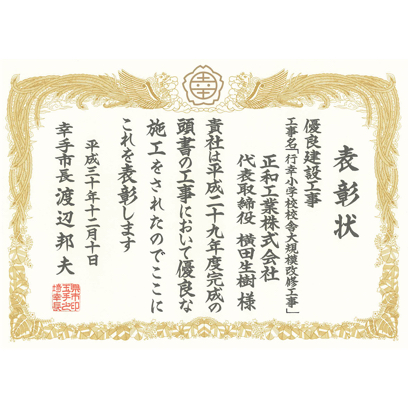 表彰状
優良建設工事
工事名「行幸小学校校舎大規模改修工事」
正和工業株式会社
代表取締役 横田生樹 様
貴社は平成二十九年度完成の
頭書の工事において優良な
施工をされたのでここに
これを表彰します
平成三十年十二月十日
幸手市長 渡辺邦夫